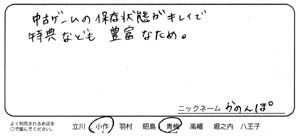 中古ゲームの保存状態がキレイで
特典なども豊富なため。
ニックネーム かのんぽ
よく利用されるお店を
○で囲んでください。
立川 小作 羽村 昭島 青梅 高幡 堀之内 八王子